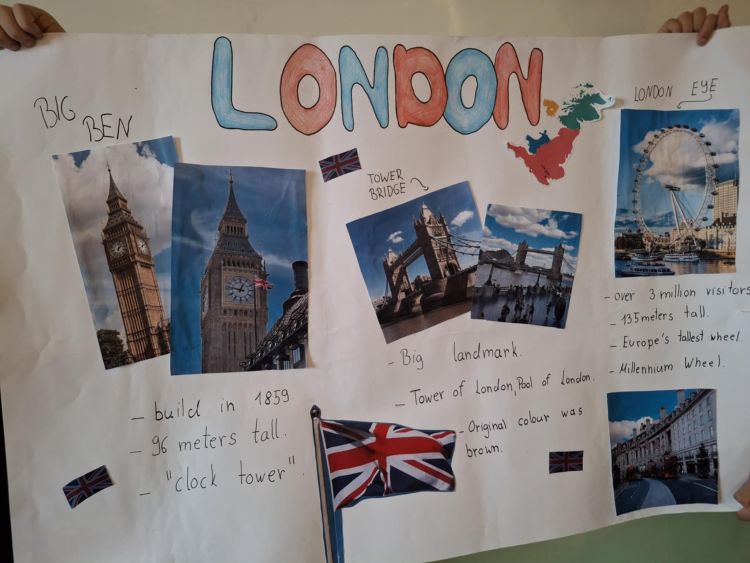 LONDON
BIG
BEN
- build in 1859.
- 96 meters tall.
- "clock tower".
TOWER
BRIDGE
- Big landmark.
- Tower of London, Pool of London.
- Original colour was
brown.
LONDON EYE
- over 3 million visitors
- 135 meters tall.
- Europe's tallest wheel.
- Millennium Wheel.